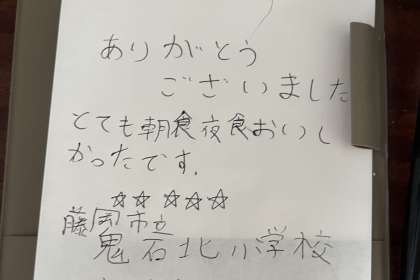 ありがとう
ございました
とても朝食夜食おいし
かったです.
☆☆ ☆☆☆
藤岡市立
鬼石北小学校